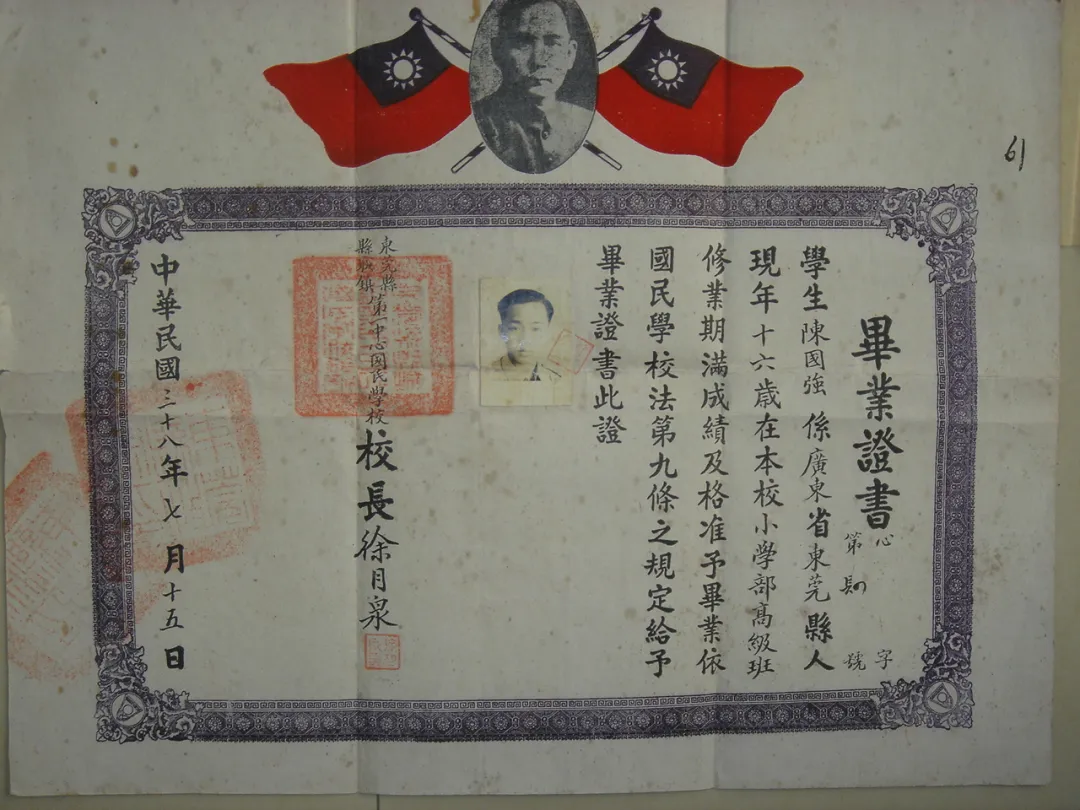 畢業證書
心 字
第 號
學生陳國強係廣東省東莞縣人
現年十六歲在本校小學部高級班
修業期滿成績及格准予畢業依
國民學校法第九條之規定給予
畢業證書此證
東莞縣
縣城鎮
第一中心國民學校校長徐月泉
中華民國三十八年七月十五日
61